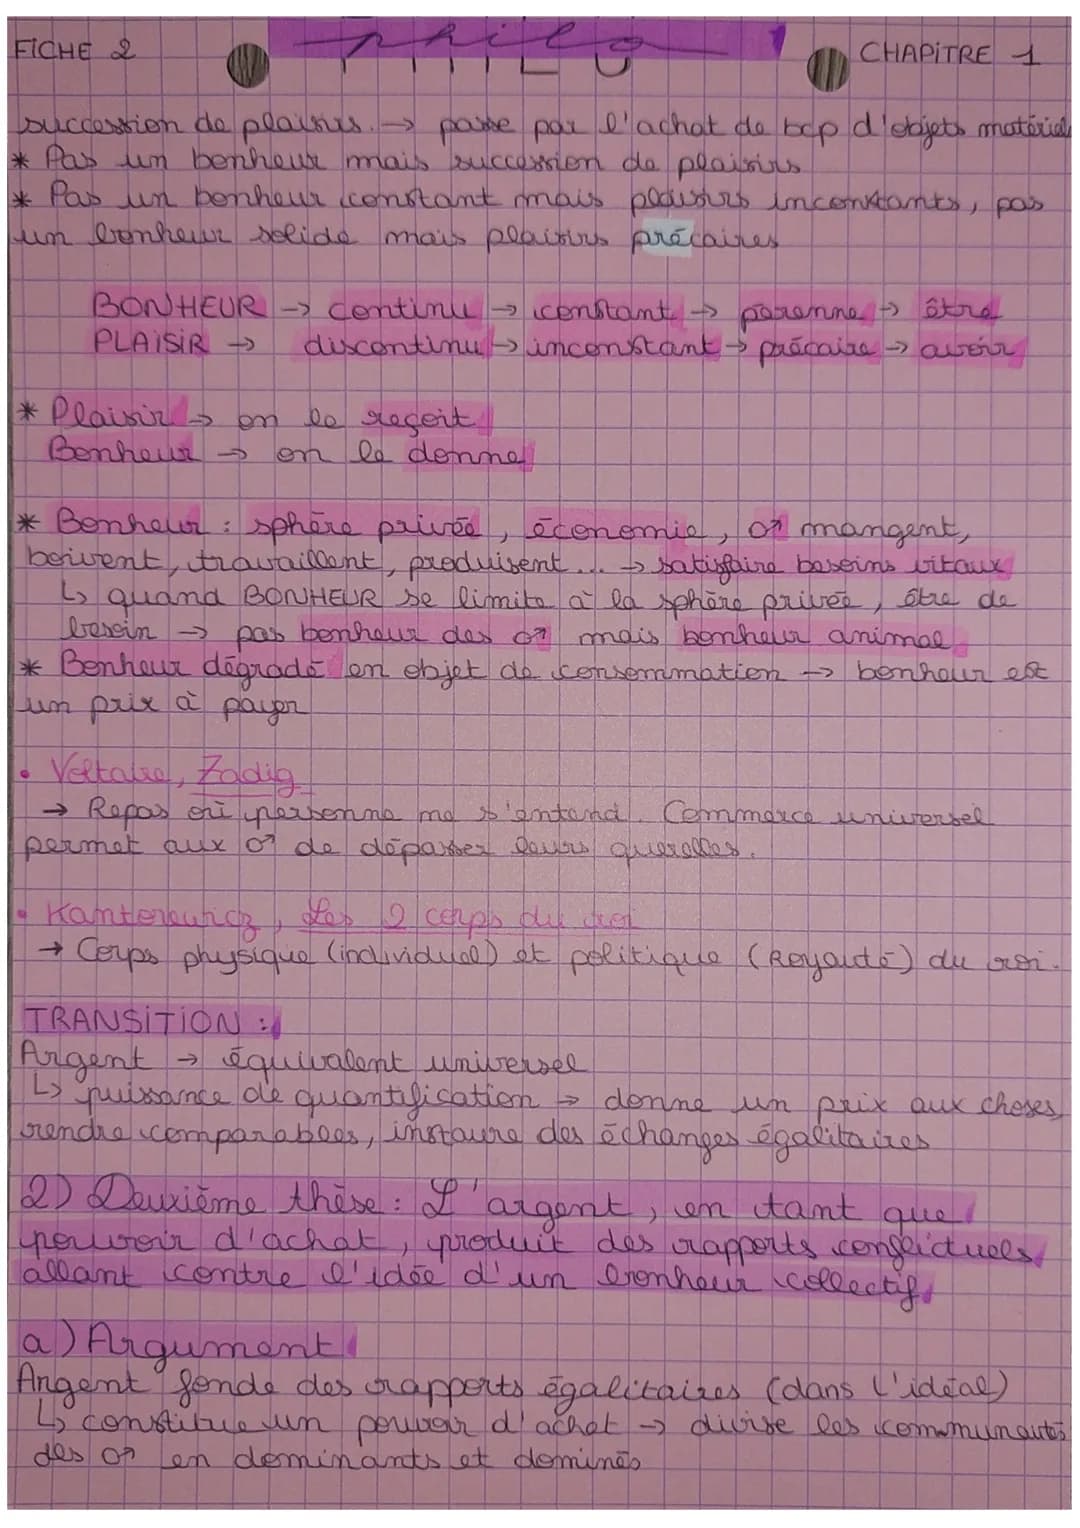 FICHE 2
philo
CHAPITRE 1
succession de plaisirs. → passe par l'achat de bcp d'objets matériel
* Pas un bonheur mais succession de plaisirs
* Pas un bonheur constant mais plaisirs inconstants, pas
un bonheur solide mais plaisirs précaires
BONHEUR → continu → constant → perenne → être
PLAISIR → discontinu → inconstant → précaire → avoir
* Plaisir → on le reçoit
Bonheur → on le donne
* Bonheur : sphère privée, économie, ♂ mangent,
boivent, travaillent, produisent... → satisfaire besoins vitaux
↳ quand BONHEUR se limite à la sphère privée, être de
besoin → pas bonheur des ♂ mais bonheur animal
* Bonheur dégradé en objet de consommation → bonheur est
un prix à payer
• Voltaire, Zadig
→ Repas où personne ne s'entend. Commerce universel
permet aux ♂ de dépasser leurs querelles.
• Kantorowicz, Les 2 corps du roi
→ Corps physique (individuel) et politique (Royauté) du roi.
TRANSITION :
Argent → équivalent universel
↳ puissance de quantification → donne un prix aux choses,
rendre comparables, instaure des échanges égalitaires
2) Deuxième thèse : L'argent, en tant que
pouvoir d'achat, produit des rapports conflictuels
allant contre l'idée d'un bonheur collectif
a) Argument
Argent fonde des rapports égalitaires (dans l'idéal)
↳ constitue un pouvoir d'achat → divise les communautés
des ♂ en dominants et dominés